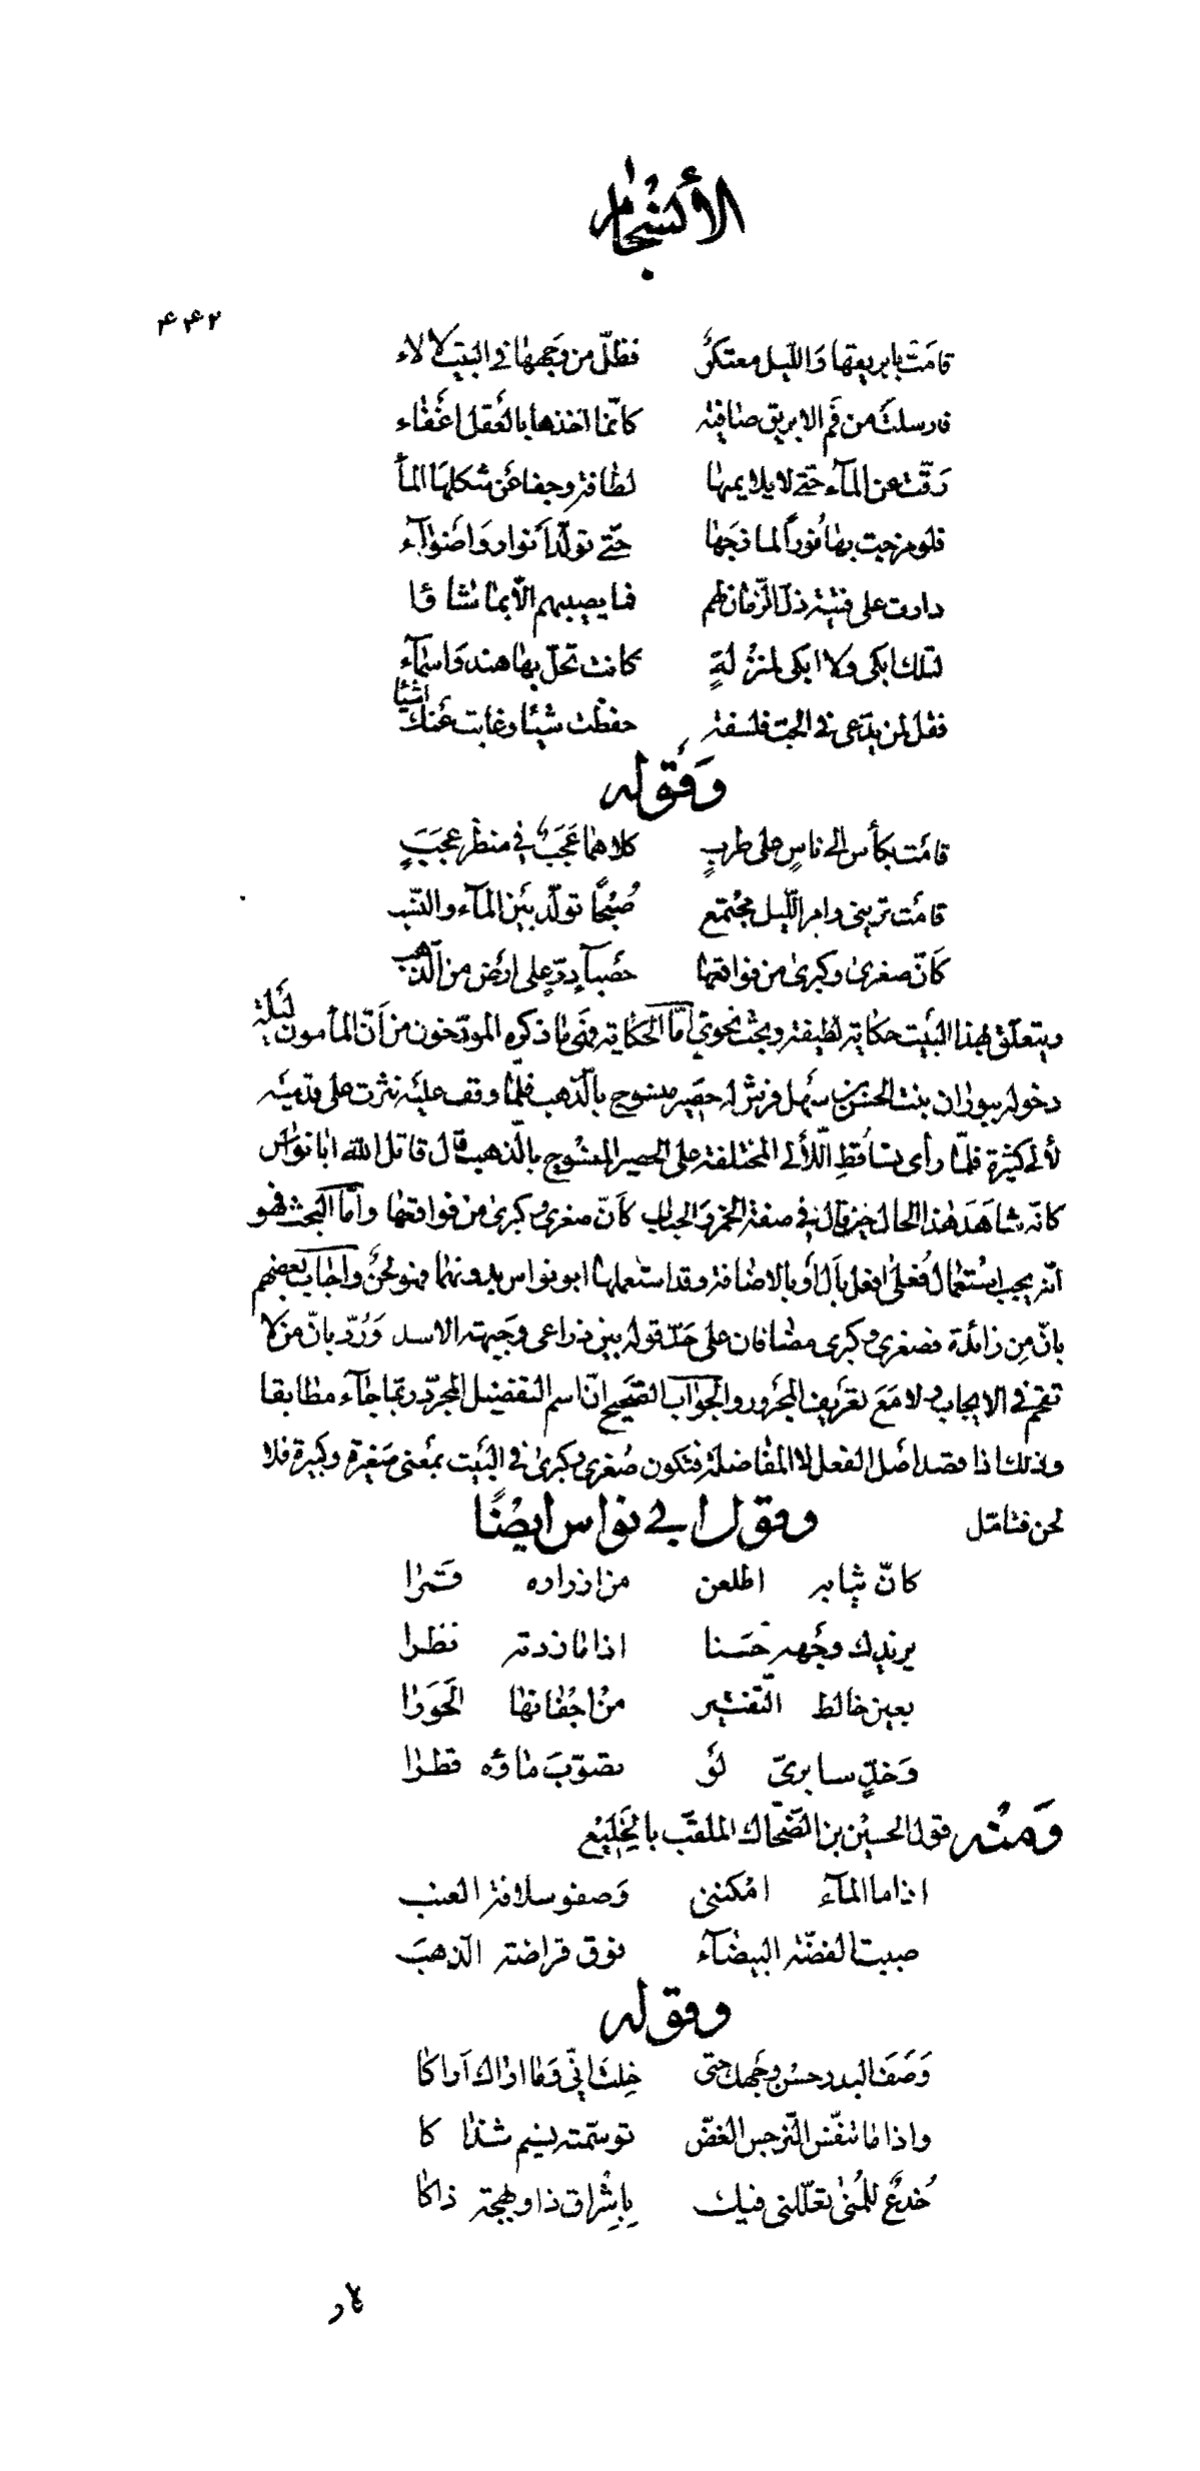 الأنسجام
٤٤٢
قامَت بابريقها وَاللّيل معتكرٌ فظلّ من وَجهها فى البَيت لالاء
فارسلت من فَم الابريق صافية كانّما اخذها بالعَقل اغفاء
رَقّت عن المآء حتّى لا يلايمها لطافة وجفا عَن شكلهَا المأ
فلو مزجت بها نُوراً لمازجَها حتّى تولّد أنوار وَاضوآء
دارت على فتية ذلّ الزّمان لهم فما يصيبهم الّا بما شاؤا
لتلك ابكى ولا ابكى لمنزُلةٍ كانت تحلّ بها هند وَاسمآء
فقل لمن يدّعى فى الحبّ فلسفة حفظت شيئا وغابت عَنك اشيا
وَقوله
قامَت بكأس الى ناسٍ على طربٍ كلاهما عَجَبٌ في منظر عجَبَبٍ
قامَت ترينى وامر اللّيل مجُتمع صُبْحًا تولّد بَين المآء والعنَب
كَانّ صغرى وكبرى من فواقعها حَصبآء دّرٍ على ارَض من الذّهب
ويتعلّق بهذا البَيت حكاية لطيفة وبحث نحوىّ امّا الحكاية فَهى ما ذكره المورّخون من اَنّ المأمون ليَلة
دخوله ببوران بنت الحسَن بن سَهل فرش له حصَير منسوج بالّذهب فلمّا وقف عليَه نثرت على قدميَه
لألى كثيرة فلمّا رأى تسَاقط اللّألى المختلفة على الحصير المنسُوج بالّذهب قال قاتل الله ابا نواس
كانّه شاهَدَ هٰذا الحال حين قال في صفة الخمر وَالحباب كاَنّ صغرى وكبرى من فواقعها وامّا البَحث فهو
انّه يجب استعمال فُعلى افعل بأل اَو بالاضافة وقد استعملها ابو نواس بدونهما فهو لحنٌ واجاب بَعضهم
بانّ مِن زائدة فصغرى وكبرى مضافان على حَدّ قوله بين ذراعى وجبهة الاسد وَرُدّ بانّ من لا
تقحم فى الايجاب ولا مَعَ تعَريف المجَرور والجوَاب الصّحيح انّ اسم التفضيل المجرّد ربّما جآء مطابقا
وذلك اذا قصد اصَل الفعل لا المفاضلة فتكون صُغرى وكبرىٰ فى البَيت بمَعنى صَغيرة وكبيرة فلا
لحن فتامّل وقول ابى نواس ايضًا
كانّ ثيابه اطلعن من ازراره قمَرا
يزيدك وجَهه حُسَنا اذا ما زدته نظرا
بعين خالط التّفتير من اجُفانها الَحَورا
وَخدٍّ سابرىّ لَو تصَوّبَ ماؤه قطرا
وَمنُه قول الحسين بن الضّحاك الملقّب بالخَليَع
اذا ما المآء امُكننى وَصفو سلافة العنب
صببت الفضّة البيضآء فوق قراضة الذّهبَ
وقوله
وَصَف البدر حسُن وجَهك حتى خِلت انّى وَما اراك اَراكا
واذا ما تنفّس النّرجس الغضّ توسّمته نسيم شذاكا
خُدعٌ للمُنى تعلّلنى فيك بِاشِراق ذا وبهجة ذاكا
لار